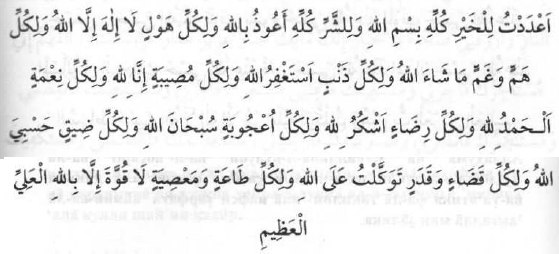 اَعْدَدْتُ لِلْخَيْرِ كُلِّهِ بِسْمِ اللهِ وَلِلشَّرِّ كُلِّهِ أَعُوذُ بِاللهِ وَلِكُلِّ هَوْلٍ لَا إِلٰهَ إِلَّا اللهُ وَلِكُلِّ
هَمٍّ وَغَمٍّ مَا شَاءَ اللهُ وَلِكُلِّ ذَنْبٍ اَسْتَغْفِرُ اللهَ وَلِكُلِّ مُصِيبَةٍ إِنَّا لِلهِ وَلِكُلِّ نِعْمَةٍ
اَلْـحَمْدُ لِلهِ وَلِكُلِّ رِضَاءٍ اَشْكُرُ لِلهِ وَلِكُلِّ أُعْجُوبَةٍ سُبْحَانَ اللهِ وَلِكُلِّ ضِيقٍ حَسْبِيَ
اللهُ وَلِكُلِّ قَضَاءٍ وَقَدَرٍ تَوَكَّلْتُ عَلَى اللهِ وَلِكُلِّ طَاعَةٍ وَمَعْصِيَةٍ لَا قُوَّةَ إِلَّا بِاللهِ الْعَلِيِّ
الْعَظِيمِ